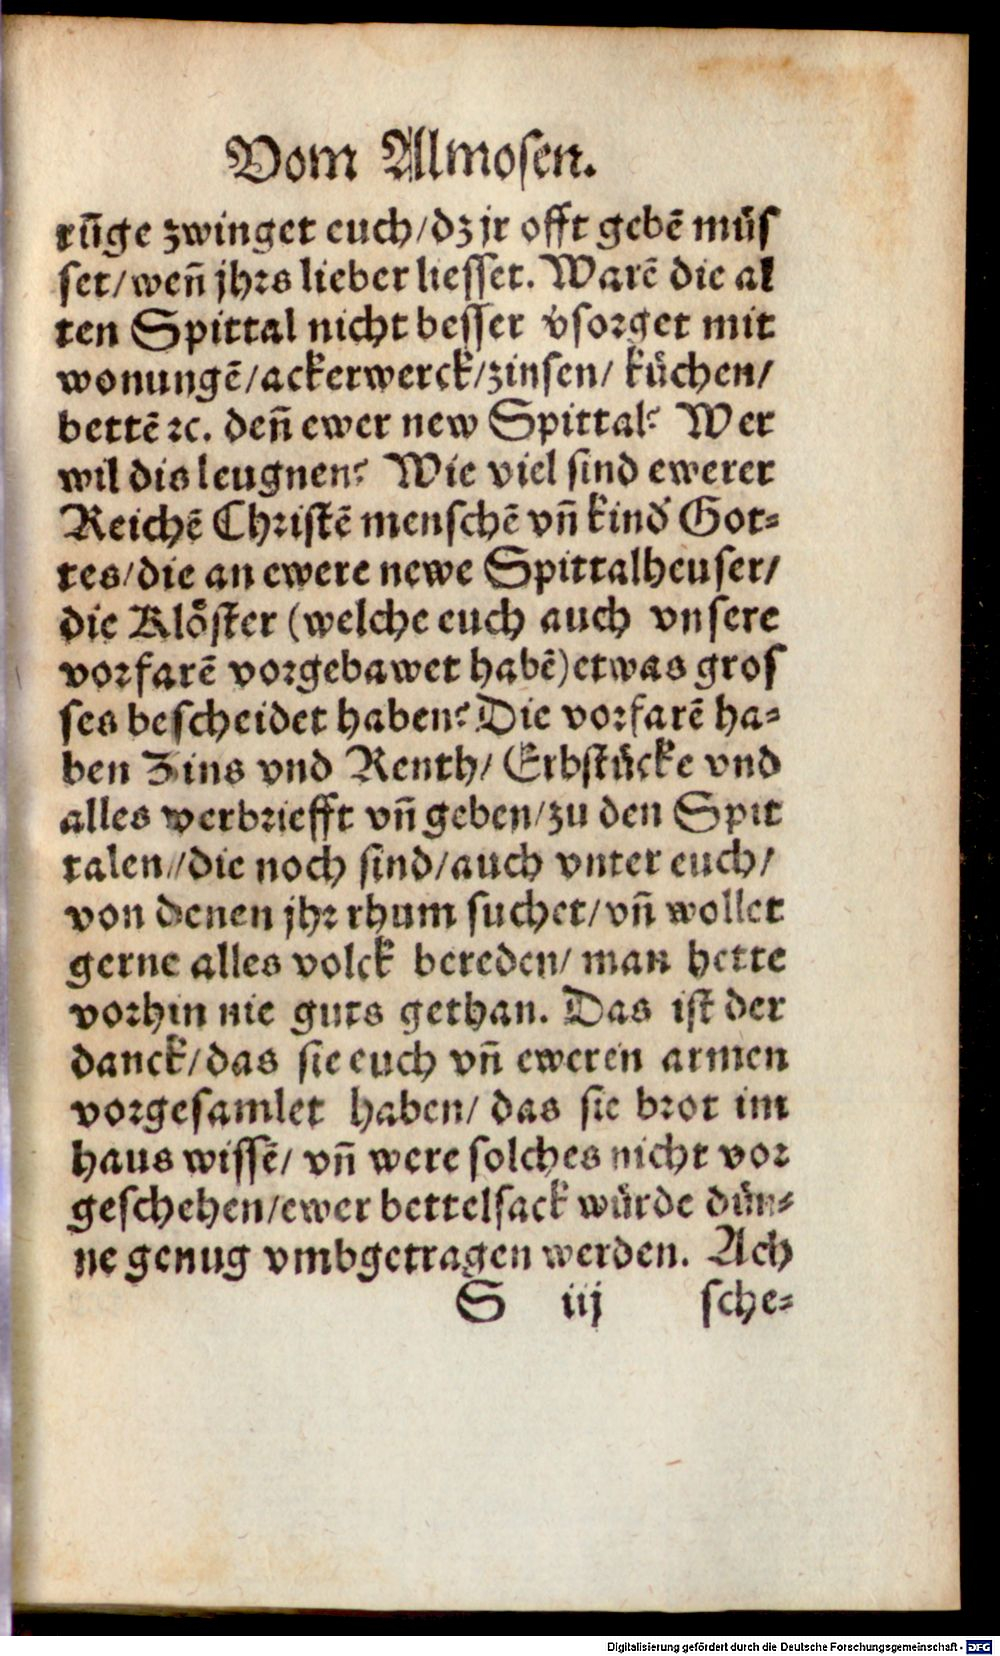 Vom Almosen.
rūge zwinget euch/dz jr offt gebē müs
set/weñ jhrs lieber liesset. Warē die al
ten Spittal nicht besser vsorget mit
wonungē/ackerwerck/zinsen/ küchen/
bettē ꝛc. deñ ewer new Spittal? Wer
wil dis leugnen? Wie viel sind ewerer
Reichē Christē menschē vñ kind Got⸗
tes/die an ewere newe Spittalheuser/
die Klöster (welche euch auch vnsere
vorfarē vorgebawet habē)etwas gros
ses bescheidet haben? Die vorfarē ha⸗
ben Zins vnd Renth/ Erbstücke vnd
alles werbriefft vñ geben/zu den Spit
talen//die noch sind/auch vnter euch/
von denen jhr rhum suchet/vñ wollet
gerne alles volck bereden/ man hette
vorhin nie guts gethan. Das ist der
danck/das sie euch vñ eweren armen
vorgesamlet haben/ das sie brot im
haus wissē/ vñ were solches nicht vor
geschehen/ewer bettelsack würde dün⸗
ne genug vmbgetragen werden. Ach
S iij sche⸗
Digitalisierung gefördert durch die Deutsche Forschungsgemeinschaft - DFG